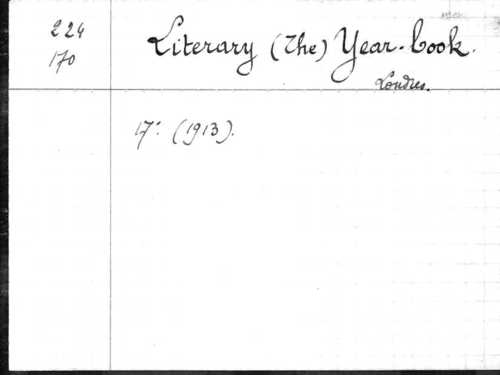 224
170
Literary (The) Year-book.
Londres.
17: (1913).